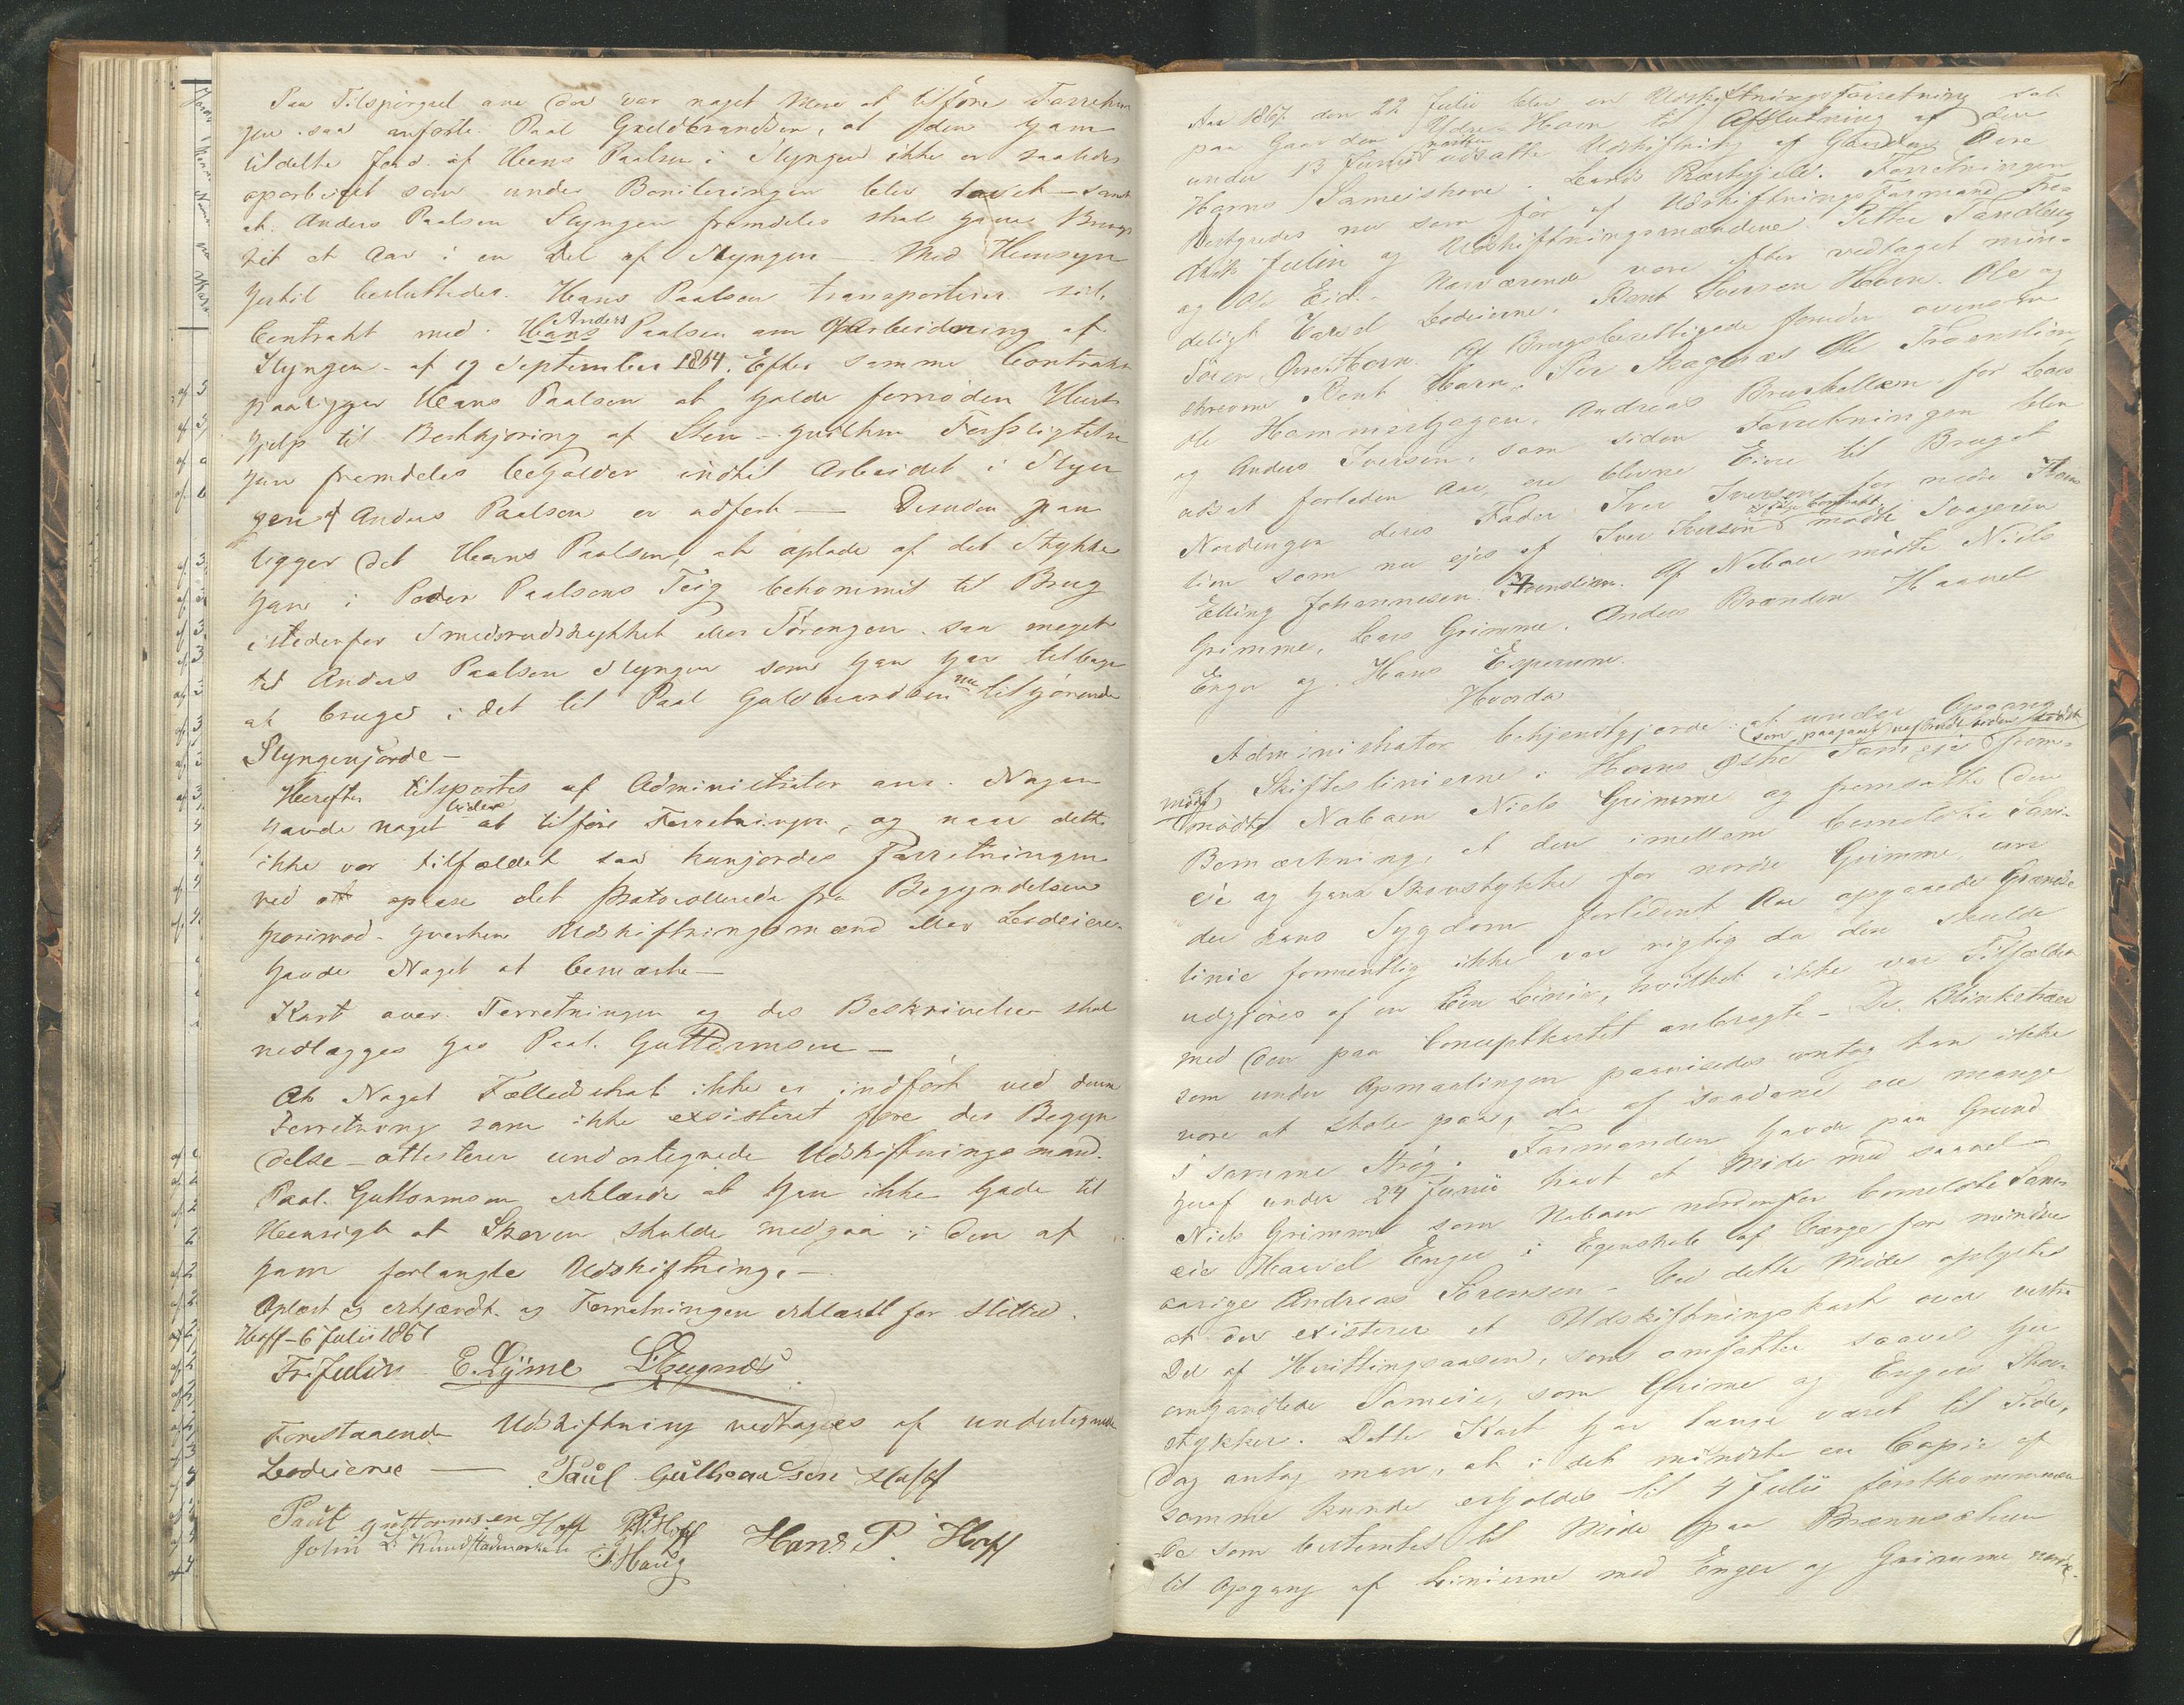 Paa Tilspørgsel om der var noget Mere at tilføre Forretnin
gen saa anførte Paal Guldbrandsen, at den ham
tildelte Jord af Hans Paalsen i Slyngen ikke er saaledes
oparbeidet som under Boniteringen blev lovet – samt
at Anders Paalsen Slyngen fremdeles skal have Brugs
ret et Aar i en Del af Slyngen –. Med Hensyn
hertil besluttedes. Hans Paalsen transporterer sit
Contrakt med Hans Anders Paalsen om Oparbeidning af
Slyngen af 19 September 1864. Efter samme Contrakt
paaligger Hans Paalsen at holde fornøden Heste
hjelp til Bortkjøring af Sten – hvilken Forpligtelse
han fremdeles beholder indtil Arbeidet i Slyn
gen af Anders Paalsen er udført — Desuden paa
ligger det Hans Paalsen, at oplade af det Stykke
han i Peder Paalsens Teig bekommet til Brug
istedenfor Smedsrudstykket eller Sørengen saa meget
til Anders Paalsen Slyngen som han har tilbage
at bruge i det til Paal Gulbrandsen nu tilhørende
Slyngenjorde –
Herefter tilspørtes af Administrator om Nogen
havde noget videre at tilføre Forretningen, og naar dette
ikke var tilfældet saa kungjordes Forretningen
ved at oplæse det Protocollerede fra Begyndelsen
hvorimod hverken Udskiftningsmænd eller Lodeiere
havde Noget at bemærke —
Kart over Forretningen og des Beskrivelse skal
nedlægges hos Paal Guttormsen –
At Noget Fælledskab ikke er indført ved denne
Forretning som ikke existeret føre des Begyn
delse – attesterer undertegnede Udskiftningsmænd.
Paal Guttormsen erklærede at han ikke havde til
Hensigt at Skoven skulde medgaa i den af
ham forlangte Udskiftning. –
Oplæst og erkjændt og Forretningen erklæret for sluttet.
Hoff – 6 Julii 1867
Fr. Julin E. Lyme
Forestaaende Udskiftning vedtages af undertegnede
Lodeiere — Paul Gulbrandsen Hoff
Paul Guttormsen Hoff P. Hoff Hans P. Hoff
John L. Kundstadmarken Haug
Aar 1867 den 22 Julii blev en Udskiftningsforretning sat
paa Gaarden Ydre Horn til Afslutning af den
under 13 Junii næstfor udsatte Udskiftning af Gaarden Øvre
Horns Sameiskove. Lands Præstegjeld. Forretningen
bestyredes nu som før af Udskiftningsformand Fre
drik Julin og Udskiftningsmændene Petter Tandberg
og Ole Eid. Nærværende vare efter vedtaget min
deligt Varsel Lodeierne. Bent Iversen Horn. Ole og
Søren Øvre Horn. Af Brugsberettigede foruden ovenom
skrevne Bent Horn. Per Skagnæs Ole Froenslien,
Ole Hammershagen, Andreas Brushellæen for Lars
og Anders Iversen, som siden Forretningen blev
udsat forleden Aar, ere blevne Eiere til Bruget
Nordengen deres Fader Iver Iversen for nedre Horns
lien som nu ejes af Iver Iversen mødte Svogeren
Elling Johannesen Hornslien. Af Naboer mødte Niels
Grimme, Lars Grimme, Anders Brænden Haavel
Enger og Hans Esperum.
Hvorda
Administrator bekjendtgjorde at under Opgang
af Skifteslinierne i Horns østre Sameje frem-
mødte Naboen Niels Grimme og fremsatte den
Bemærkning, at den imellem bemeldte Sam-
eie og hans Skovstykke for nordre Grimme un
der hans Sygdom forledent Aar opgaaede Grændse
linie formentlig ikke var rigtig da den skulde
udgjøres af en Een Linie, hvilket ikke var Tilfældet
med den paa Conceptkartet anbragte – De Blinketræer
som under Opmaalingen paavisedes antog han ikke
være at stole paa, da af saadane ere mange
i samme Strøg. Formanden havde paa Grund
heraf under 24 Junii havt et Møde med saavel
Niels Grimme som Naboen nordenfor bemeldte Sam-
eie Haavel Enger i Egenskab af Værge for mindre
aarige Andreas Sørensen – Ved dette Møde oplystes
at der existerer et Udskiftningskart over vestre
Del af Hvittingsaasen, som omfatter saavel her
omhandlede Sameie, som Grime og Engers Skov-
stykker. Dette Kart har længe været til Side,
dog antog man, at i det mindste en Copie af
samme kunde erholdes til 4 Julii førstkommen
de som bestemtes til Møde paa
til Opgang af Linierne med Enger og Grimme nordre